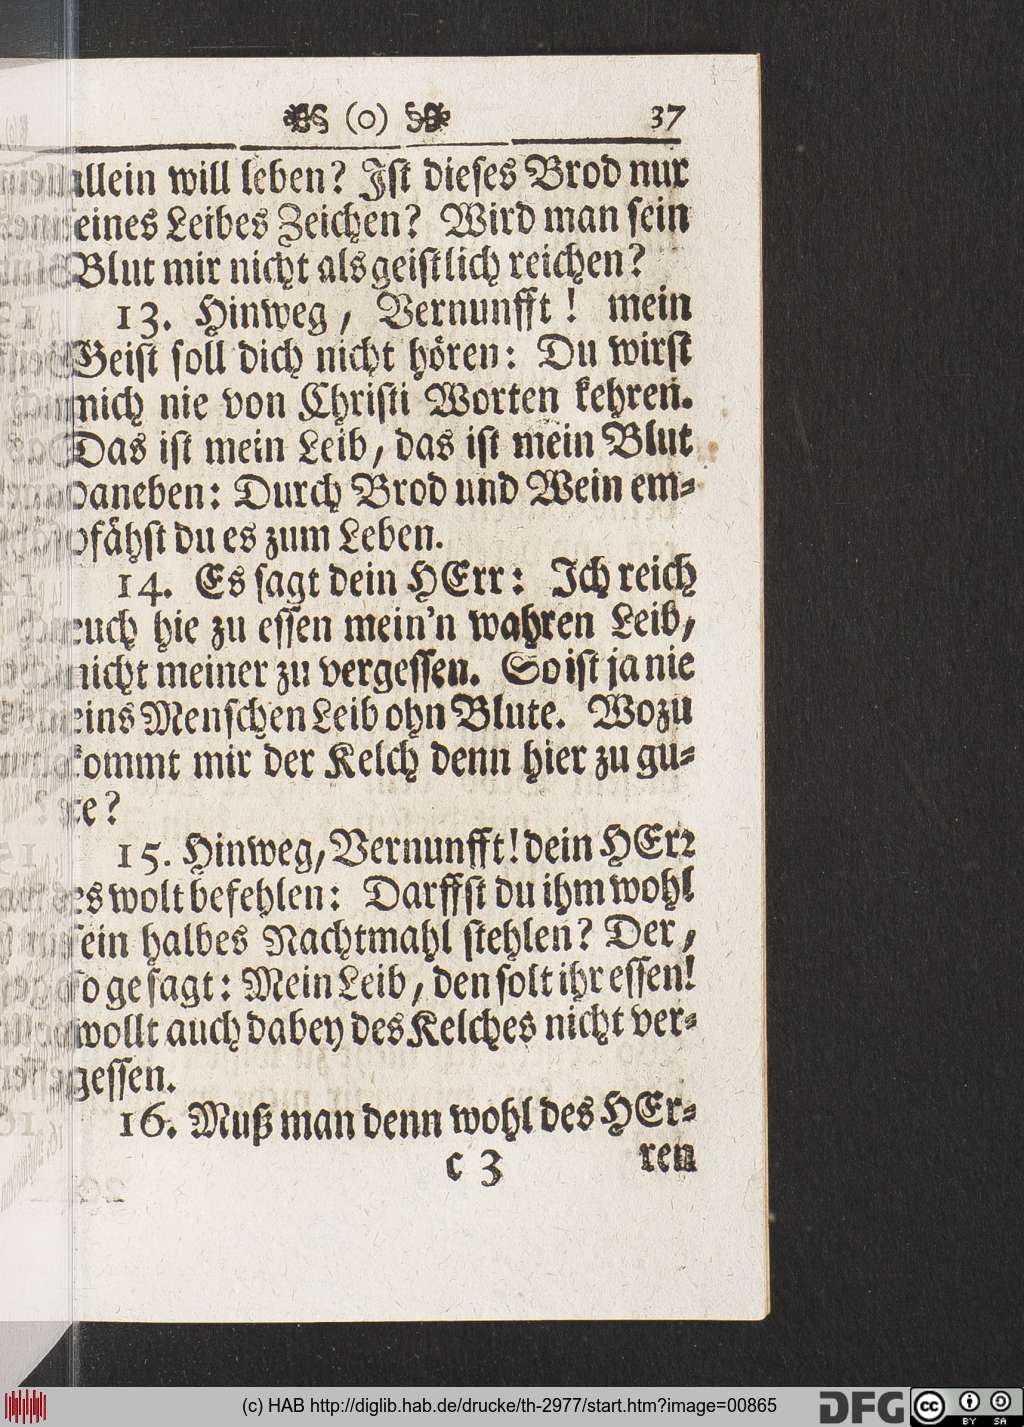 (o) 37
allein will leben? Iſt dieſes Brod nur
eines Leibes Zeichen? Wird man ſein
Blut mir nicht als geiſtlich reichen?
13. Hinweg, Vernunfft! mein
Geiſt ſoll dich nicht hören: Du wirſt
mich nie von Chriſti Worten kehren.
Das iſt mein Leib, das iſt mein Blut
daneben: Durch Brod und Wein em-
pfähſt du es zum Leben.
14. Es ſagt dein HErr: Ich reich
euch hie zu eſſen mein'n wahren Leib,
nicht meiner zu vergeſſen. So iſt ja nie
eins Menſchen Leib ohn Blute. Wozu
kommt mir der Kelch denn hier zu gu-
te?
15. Hinweg, Vernunfft! dein HErr
es wolt befehlen: Darffſt du ihm wohl
ſein halbes Nachtmahl ſtehlen? Der,
ſo geſagt: Mein Leib, den ſolt ihr eſſen!
wollt auch dabey des Kelches nicht ver-
geſſen.
16. Muß man denn wohl des HEr-
c 3 ren
(c) HAB http://diglib.hab.de/drucke/th-2977/start.htm?image=00865
DFG cc BY SA